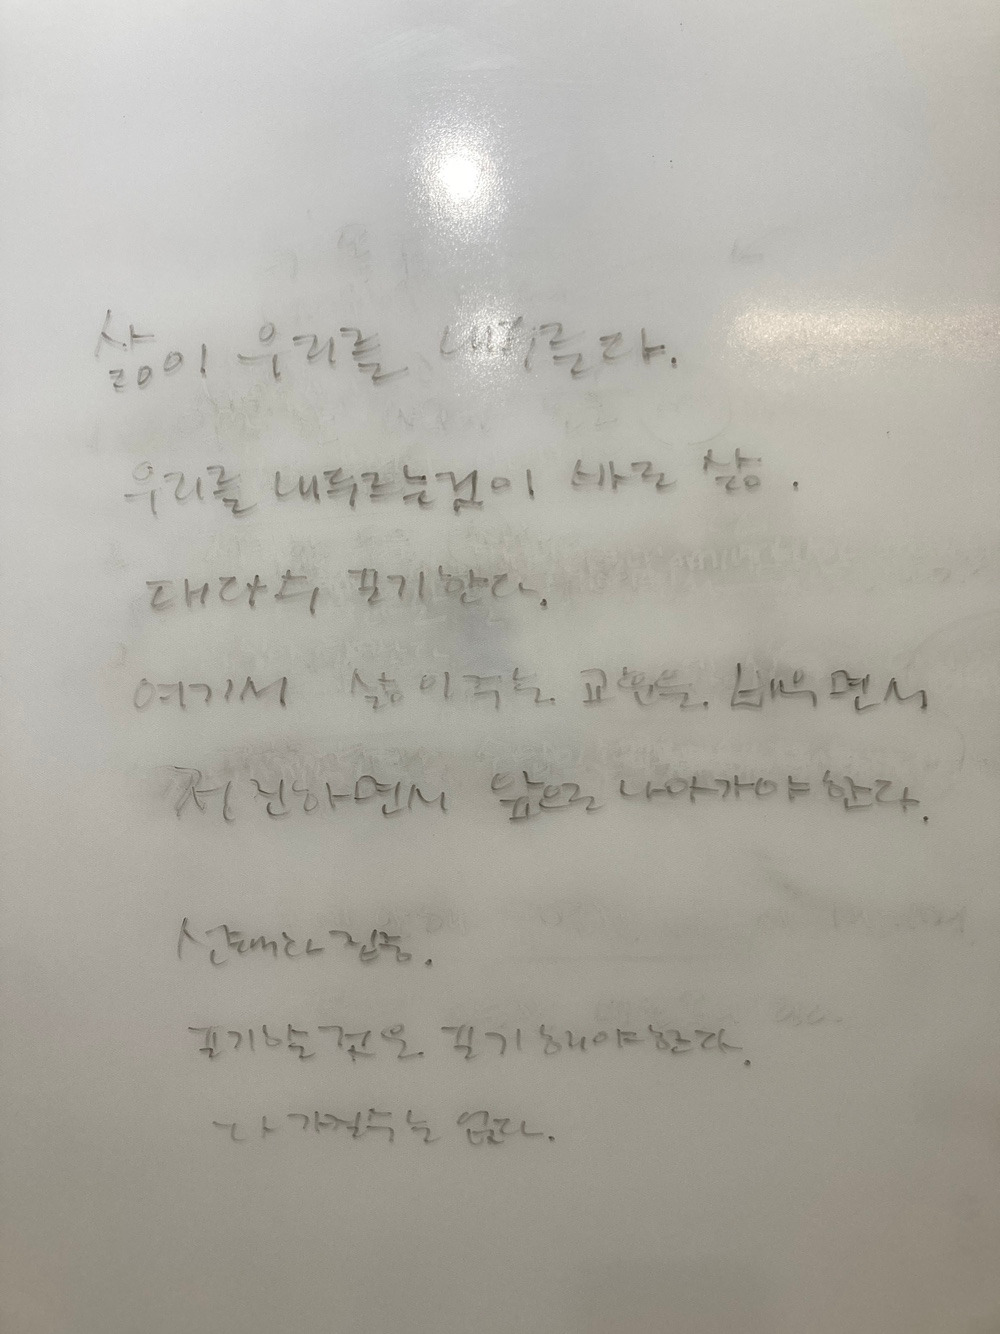 삶이 우리를 내두른다.
우리를 내두르는것이 바로 삶.
대다수 포기한다.
여기서 삶이주는. 교훈을. 배우면서
전진하면서 앞으로 나아가야한다.
선택과 집중.
포기할 것은. 포기해야한다.
다 가질수는 없다.